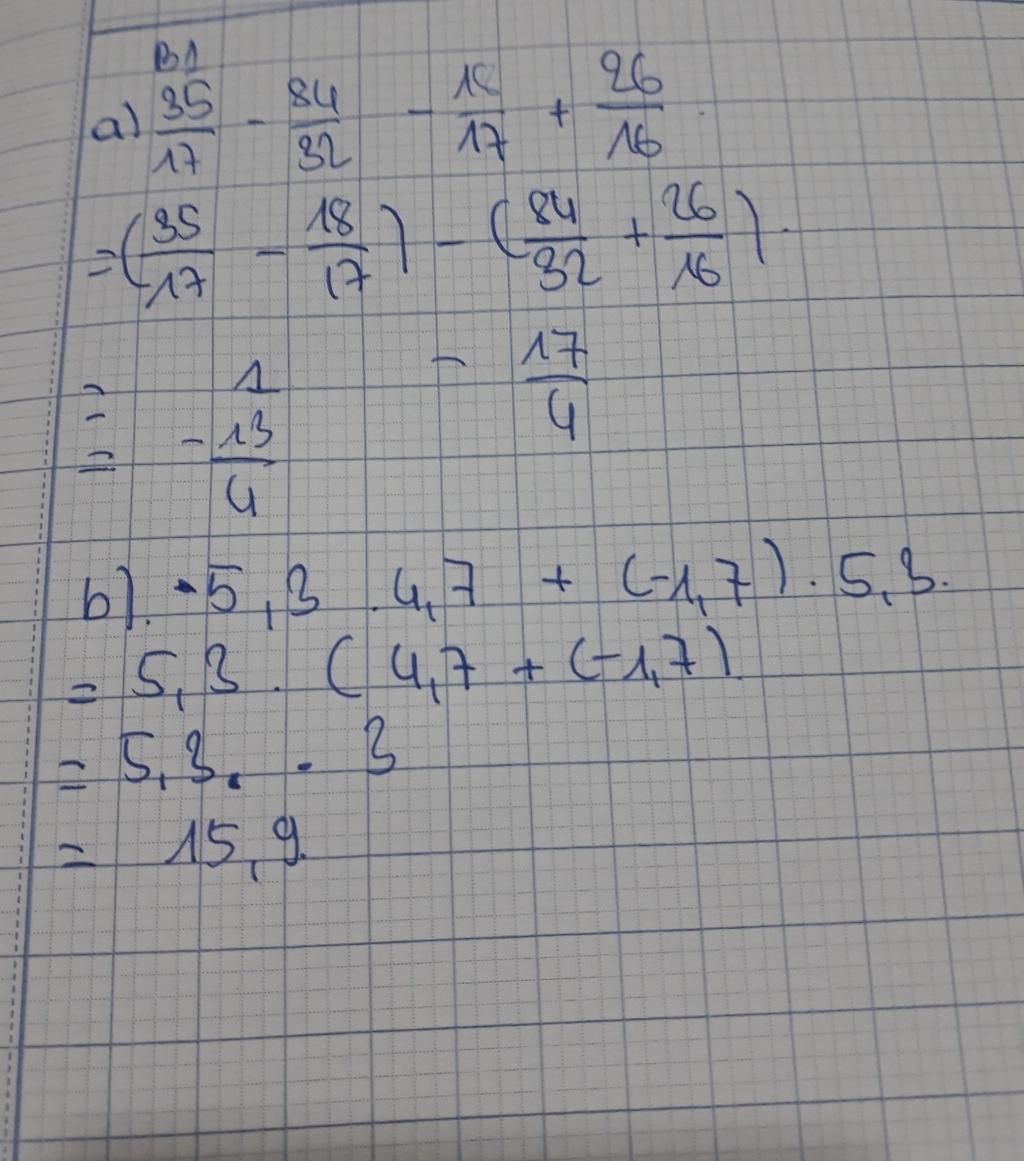 B1
a) 35/17 - 84/32 - 18/17 + 26/16.
= (35/17 - 18/17) - (84/32 + 26/16).
= 1 - 17/4
= -13/4
b). -5,3 . 4,7 + (-1,7) . 5,3.
= 5,3 . (4,7 + (-1,7)
= 5,3. . 3
= 15,9.